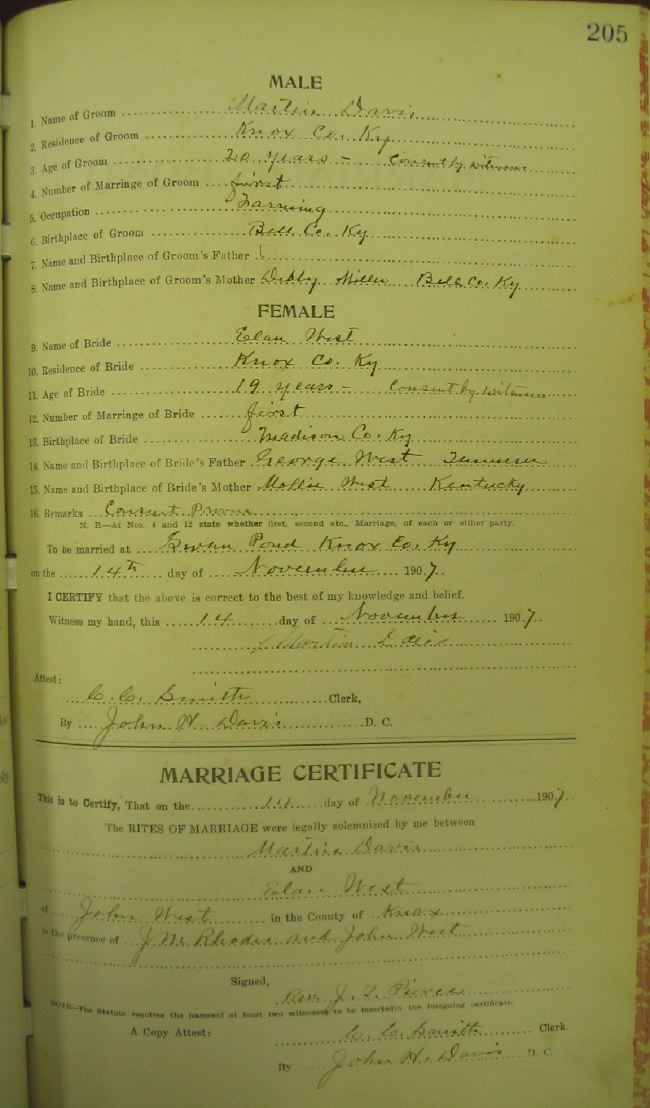 205
MALE
1. Name of Groom Martin Davis
2. Residence of Groom Knox Co. Ky
3. Age of Groom 20 years - Consent by witness
4. Number of Marriage of Groom first
5. Occupation Farming
6. Birthplace of Groom Bell Co. Ky
7. Name and Birthplace of Groom's Father
8. Name and Birthplace of Groom's Mother Debby Miller Bell Co. Ky
FEMALE
9. Name of Bride Elan West
10. Residence of Bride Knox Co. Ky
11. Age of Bride 19 years - Consent by witness
12. Number of Marriage of Bride first
13. Birthplace of Bride Madison Co. Ky
14. Name and Birthplace of Bride's Father George West Tennessee
15. Name and Birthplace of Bride's Mother Mollie West Kentucky
16. Remarks Consent
N. B.—At Nos. 4 and 12 state whether first, second etc., Marriage, of each or either party.
To be married at Swan Pond Knox Co. Ky
on the 14th day of November 1907.
I CERTIFY that the above is correct to the best of my knowledge and belief.
Witness my hand, this 14 day of November 1907.
Martin Davis
Attest:
C. C. Smith Clerk,
By John H. Davis D. C.
MARRIAGE CERTIFICATE
This is to Certify, That on the 14 day of November 1907.
The RITES OF MARRIAGE were legally solemnized by me between
Martin Davis
AND
Elan West
at John West in the County of Knox
in the presence of J. M. Rhodes and John West
Signed,
Rev. J. T. Pierce
NOTE—The Statute requires the namesof at least two witnesses to be insertedin the foregoing certificate.
A Copy Attest: C. C. Smith Clerk
By John H. Davis D. C.